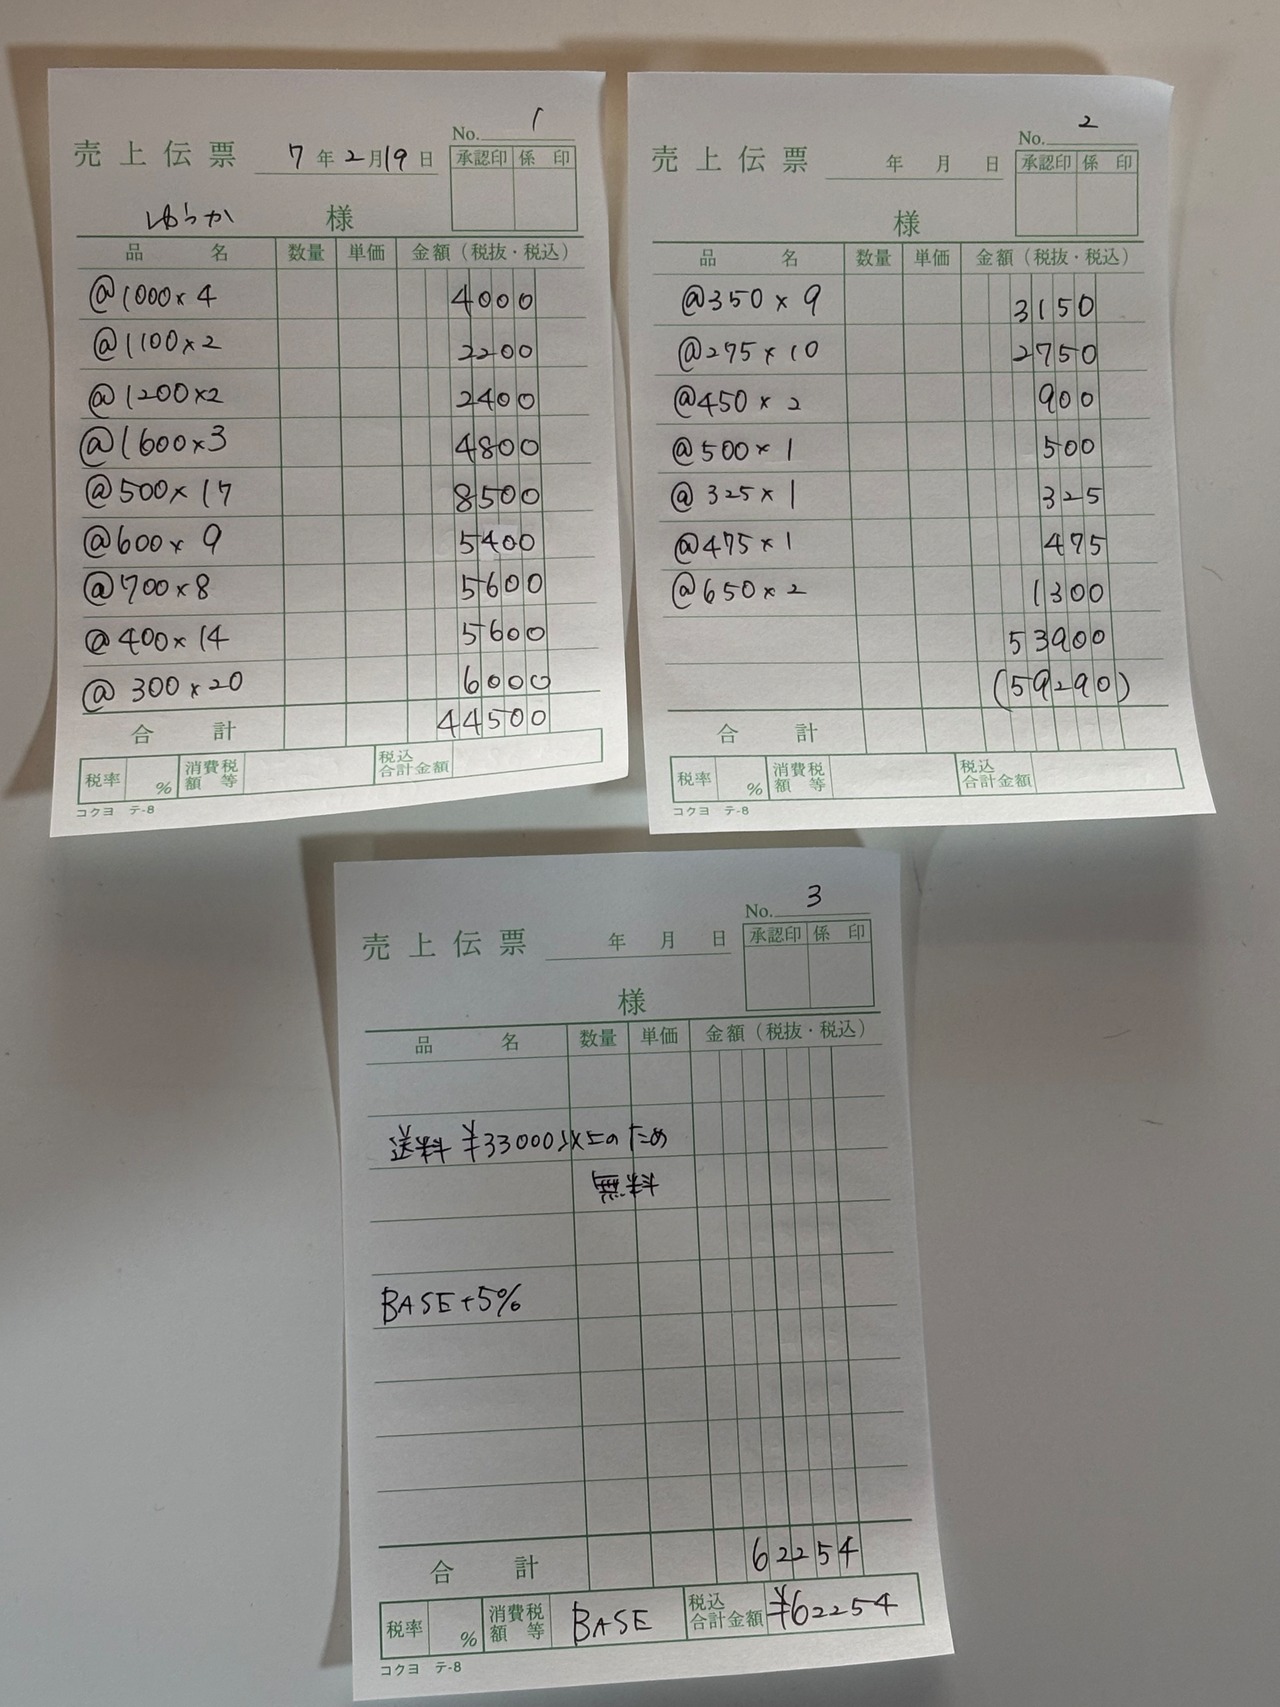 No. 1
売上伝票 7年2月19日
承認印 係印
ゆらか 様
品名 数量 単価 金額(税抜・税込)
@1000×4 4000
@1100×2 2200
@1200×2 2400
@1600×3 4800
@500×17 8500
@600×9 5400
@700×8 5600
@400×14 5600
@300×20 6000
合計 44500
税率 % 消費税額等 税込合計金額
コクヨ テ-8
No. 2
売上伝票 年 月 日
承認印 係印
様
品名 数量 単価 金額(税抜・税込)
@350×9 3150
@275×10 2750
@450×2 900
@500×1 500
@325×1 325
@475×1 475
@650×2 1300
53900
(59290)
合計
税率 % 消費税額等 税込合計金額
コクヨ テ-8
No. 3
売上伝票 年 月 日
承認印 係印
様
品名 数量 単価 金額(税抜・税込)
送料 ¥33000以上のため
無料
BASE+5%
合計 62254
税率 % 消費税額等 BASE 税込合計金額 ¥62254
コクヨ テ-8